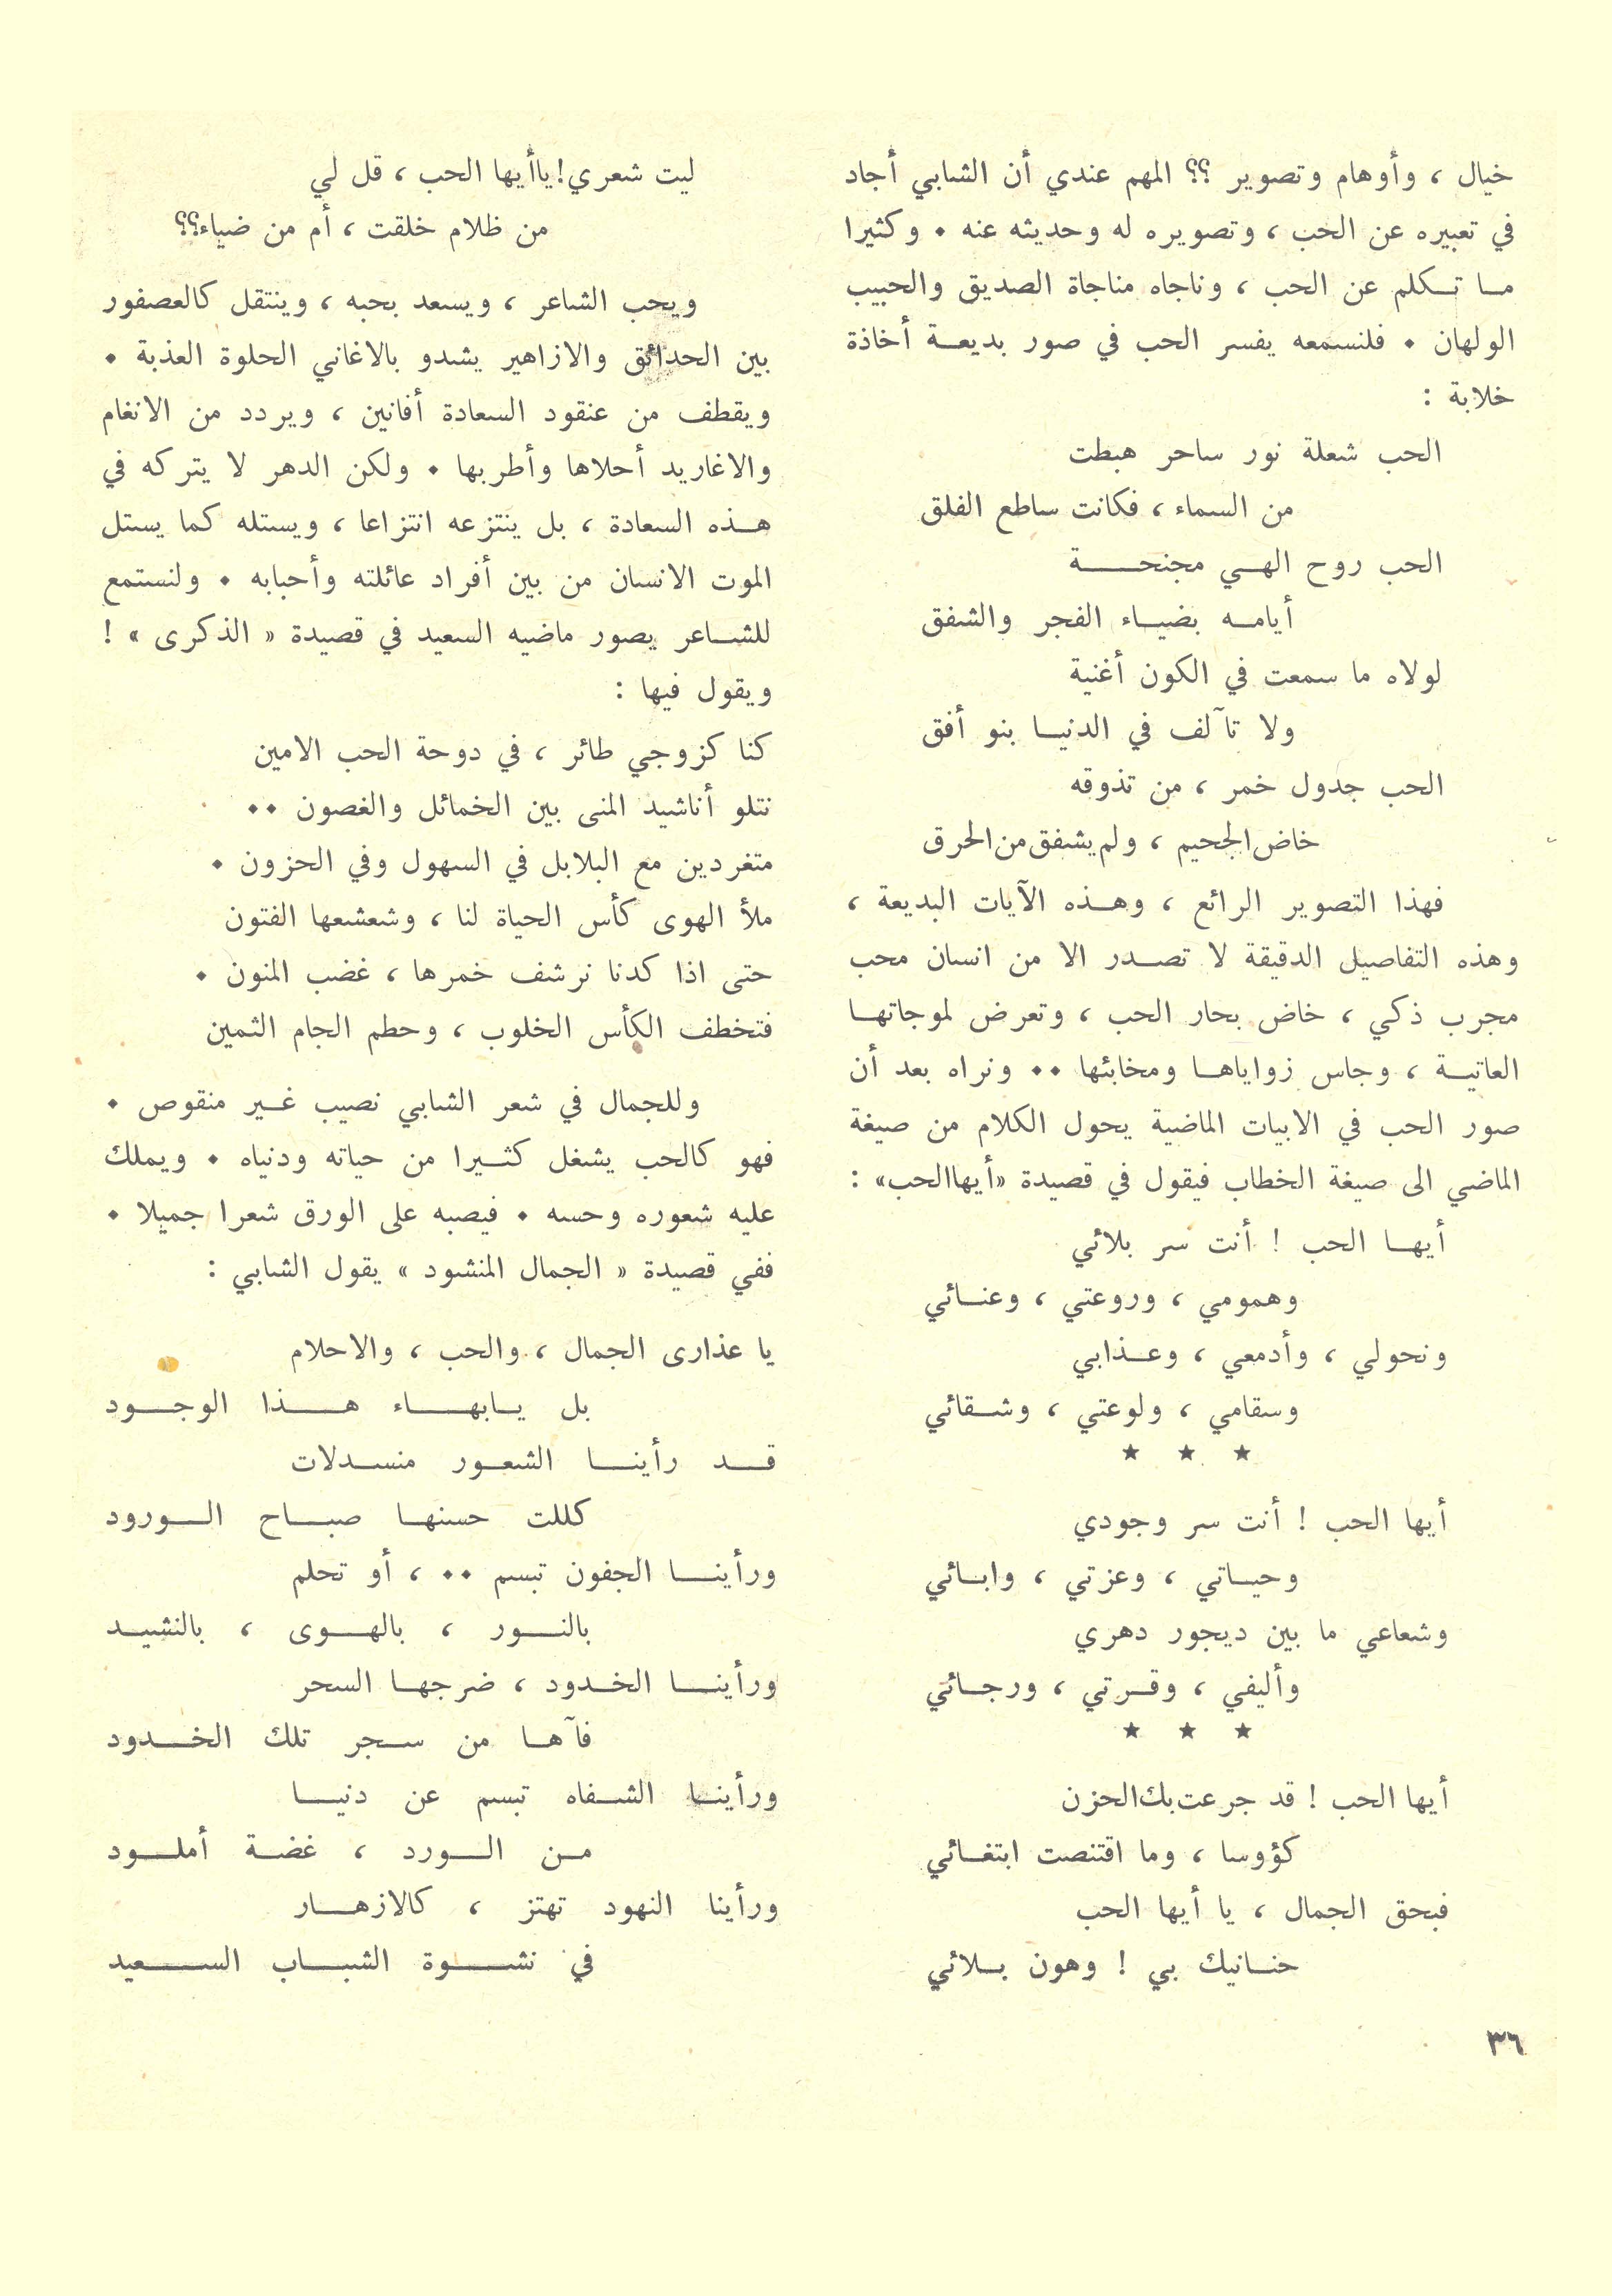 خيال ، وأوهام وتصوير ؟؟ المهم عندي أن الشابي أجاد
في تعبيره عن الحب ، وتصويره له وحديثه عنه . وكثيرا
ما تكلم عن الحب ، وناجاه مناجاة الصديق والحبيب
الولهان . فلنسمعه يفسر الحب في صور بديعة أخاذة
خلابة :
الحب شعلة نور ساحر هبطت
من السماء ، فكانت ساطع الفلق
الحب روح الهي مجنحة
أيامه بضياء الفجر والشفق
لولاه ما سمعت في الكون أغنية
ولا تآلف في الدنيا بنو أفق
الحب جدول خمر ، من تذوقه
خاض الجحيم ، ولم يشفق من الحرق
فهذا التصوير الرائع ، وهذه الآيات البديعة ،
وهذه التفاصيل الدقيقة لا تصدر الا من انسان محب
مجرب ذكي ، خاض بحار الحب ، وتعرض لموجاتها
العاتية ، وجاس زواياها ومخابئها .. ونراه بعد أن
صور الحب في الابيات الماضية يحول الكلام من صيغة
الماضي الى صيغة الخطاب فيقول في قصيدة «أيهاالحب» :
أيها الحب ! أنت سر بلائي
وهمومي ، وروعتي ، وعنائي
ونحولي ، وأدمعي ، وعذابي
وسقامي ، ولوعتي ، وشقائي
★ ★ ★
أيها الحب ! أنت سر وجودي
وحياتي ، وعزتي ، وابائي
وشعاعي ما بين ديجور دهري
وأليفي ، وقرتي ، ورجائي
★ ★ ★
أيها الحب ! قد جرعت بك الحزن
كؤوسا ، وما اقتنصت ابتغائي
فبحق الجمال ، يا أيها الحب
حنانيك بي ! وهون بلائي
ليت شعري! ياأيها الحب ، قل لي
من ظلام خلقت ، أم من ضياء؟؟
ويحب الشاعر ، ويسعد بحبه ، وينتقل كالعصفور
بين الحدائق والازاهير يشدو بالاغاني الحلوة العذبة .
ويقطف من عنقود السعادة أفانين ، ويردد من الانغام
والاغاريد أحلاها وأطربها . ولكن الدهر لا يتركه في
هذه السعادة ، بل ينتزعه انتزاعا ، ويستله كما يستل
الموت الانسان من بين أفراد عائلته وأحبابه . ولنستمع
للشاعر يصور ماضيه السعيد في قصيدة « الذكرى » !
ويقول فيها :
كنا كزوجي طائر ، في دوحة الحب الامين
نتلو أناشيد المنى بين الخمائل والغصون ..
متغردين مع البلابل في السهول وفي الحزون .
ملأ الهوى كأس الحياة لنا ، وشعشعها الفتون
حتى اذا كدنا نرشف خمرها ، غضب المنون .
فتخطف الكأس الخلوب ، وحطم الجام الثمين
وللجمال في شعر الشابي نصيب غير منقوص .
فهو كالحب يشغل كثيرا من حياته ودنياه . ويملك
عليه شعوره وحسه . فيصبه على الورق شعرا جميلا .
ففي قصيدة « الجمال المنشود » يقول الشابي :
يا عذارى الجمال ، والحب ، والاحلام
بل يابهاء هذا الوجود
قد رأينا الشعور منسدلات
كللت حسنها صباح الورود
ورأينا الجفون تبسم .. ، أو تحلم
بالنور ، بالهوى ، بالنشيد
ورأينا الخدود ، ضرجها السحر
فآها من سجر تلك الخدود
ورأينا الشفاه تبسم عن دنيا
من الورد ، غضة أملود
ورأينا النهود تهتز ، كالازهار
في نشوة الشباب السعيد
٣٦